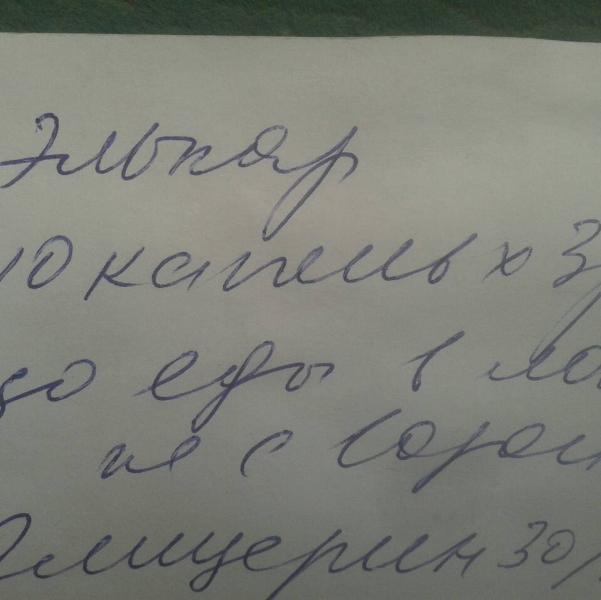 Элькар
10 капель х 3
до еды в
не с
Глицерин 30